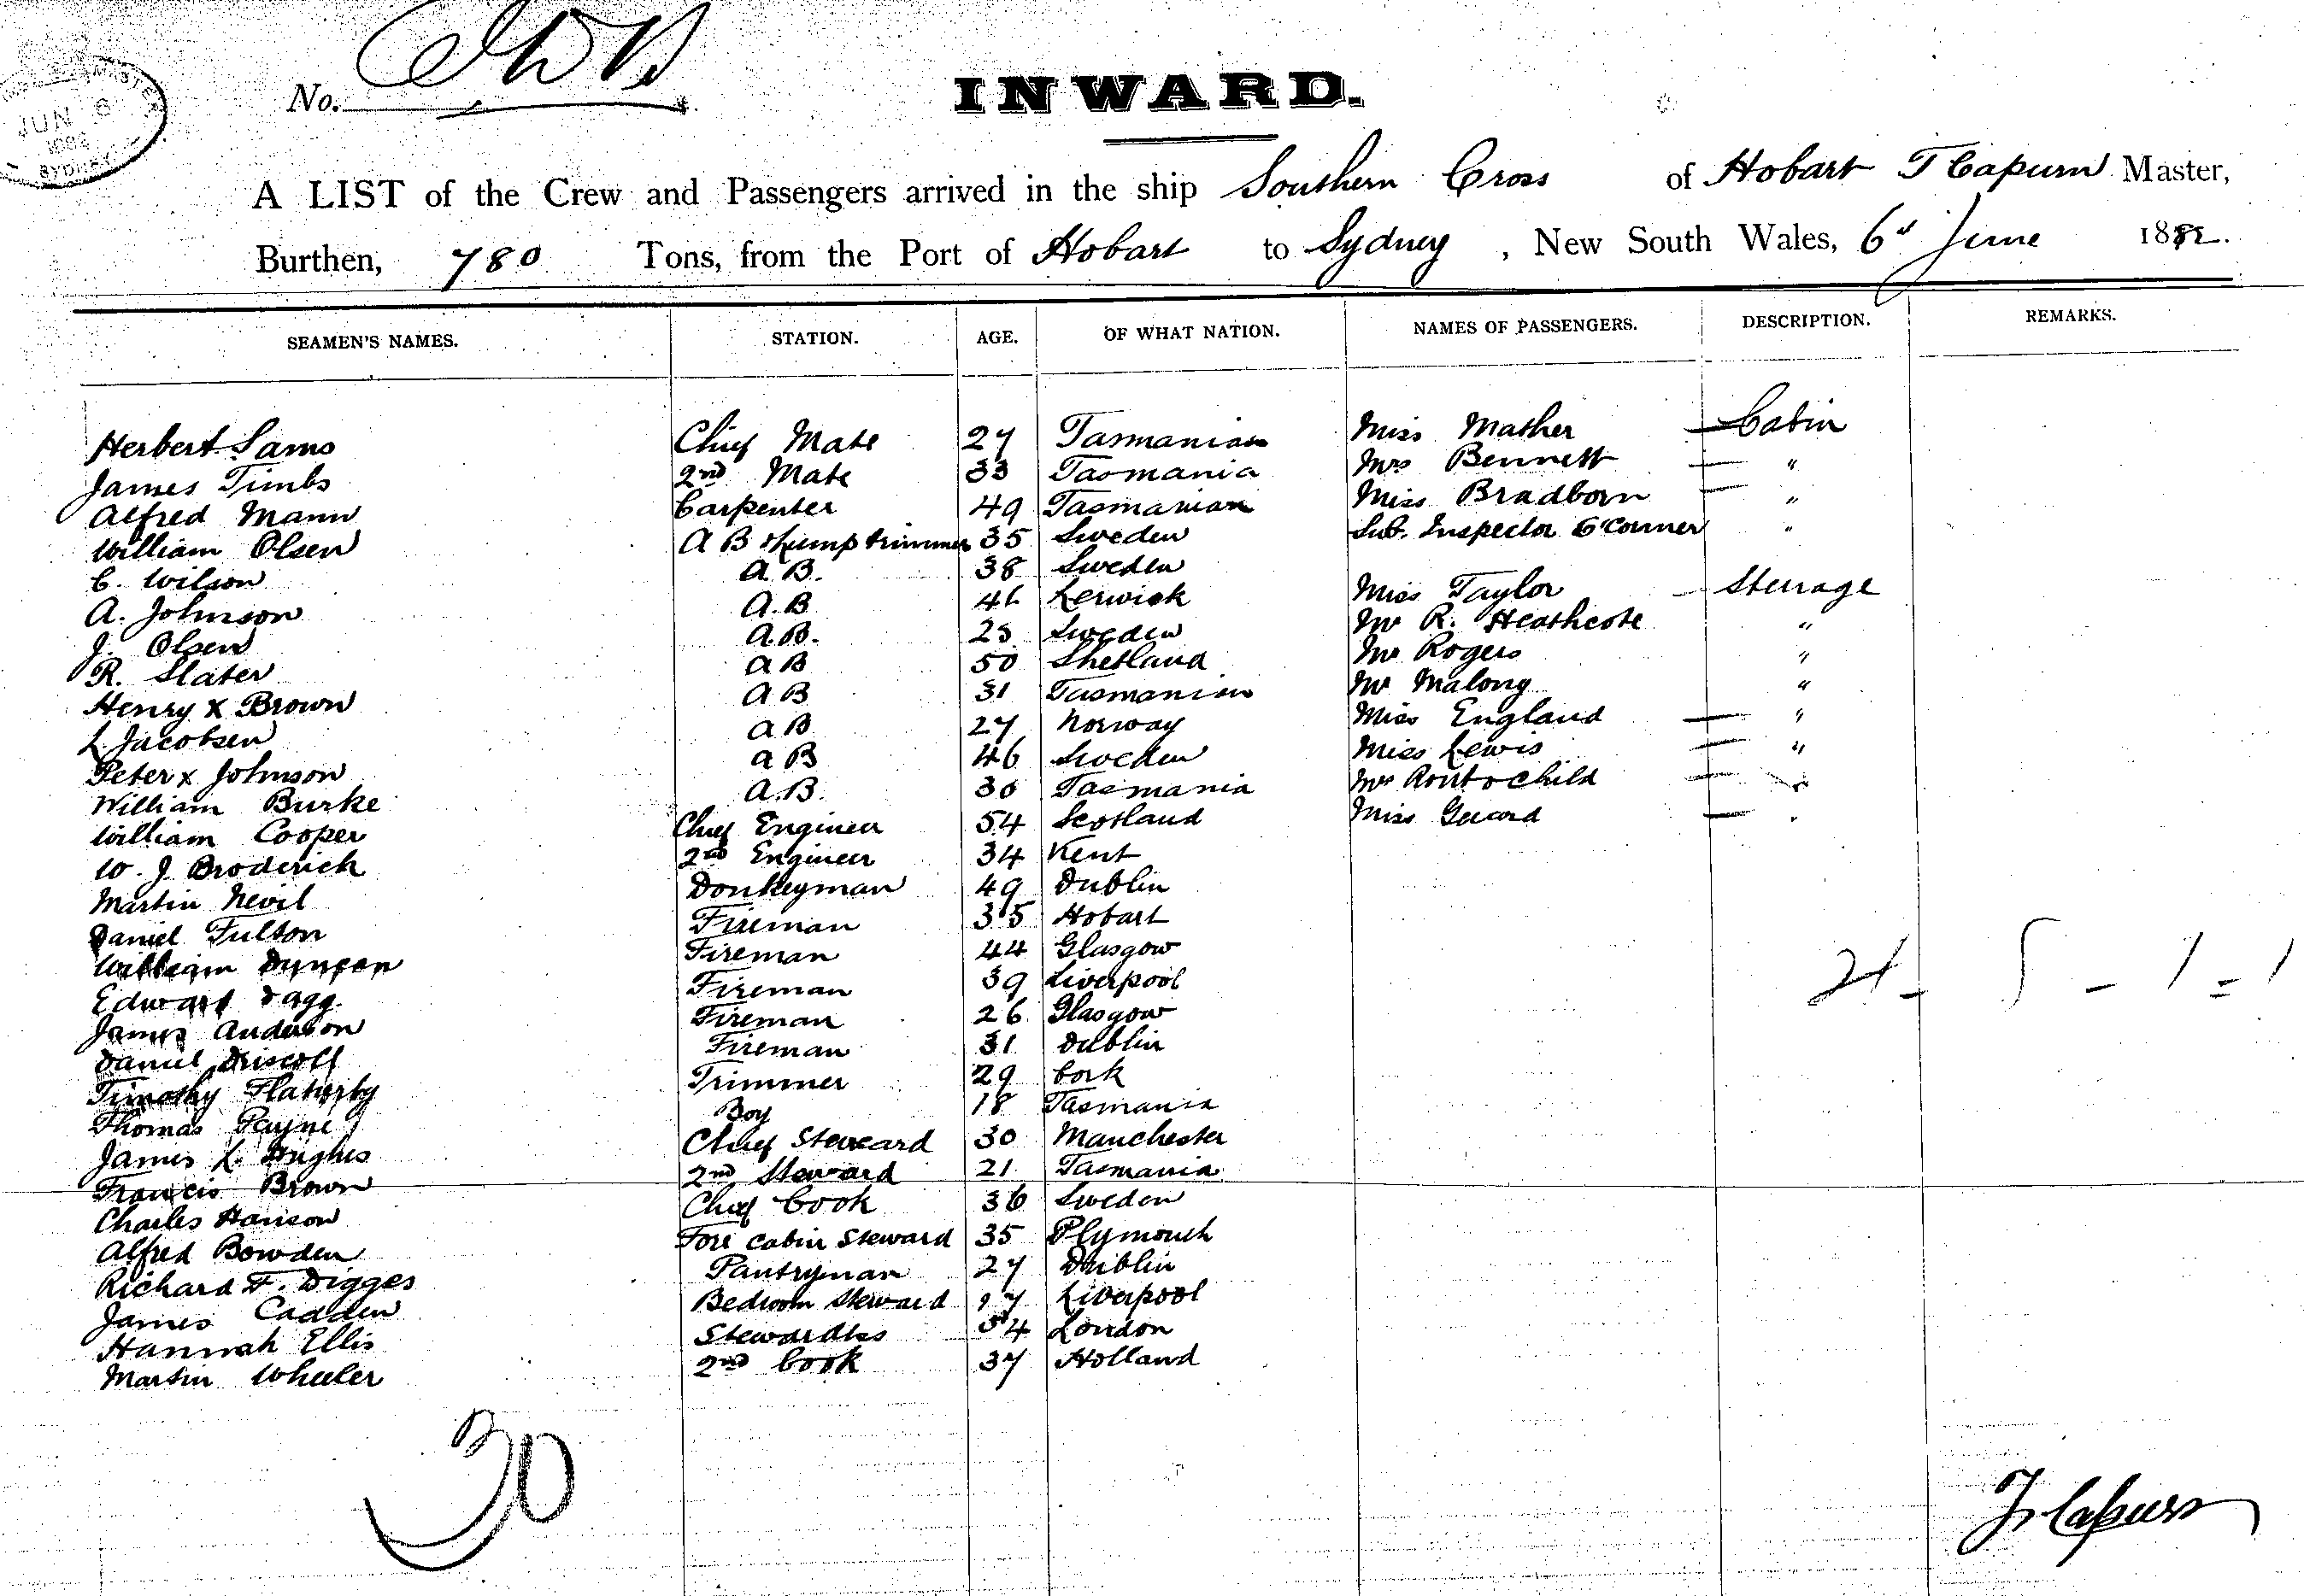 JUN 6
SYDNEY
No.
INWARD.
A LIST of the Crew and Passengers arrived in the ship Southern Cross of Hobart T Capurn Master,
Burthen, 780 Tons, from the Port of Hobart to Sydney, New South Wales, 6th June 1882.
SEAMEN'S NAMES. STATION. AGE. OF WHAT NATION. NAMES OF PASSENGERS. DESCRIPTION. REMARKS.
Herbert Sams Chief Mate 27 Tasmanian Miss Mather — Cabin
James Timbs 2nd Mate 33 Tasmania Mrs Bennett — "
Alfred Mann Carpenter 49 Tasmanian Miss Bradborn — "
William Olsen A B & Lamp trimmer 35 Sweden Sub. Inspector O'Conner "
C. Wilson A.B. 38 Sweden
A. Johnson A.B 46 Lerwick Miss Taylor — Steerage
J. Olsen A.B. 25 Sweden Mr R. Heathcote "
R. Slater A B 50 Shetland Mr Rogers "
Henry x Brown A B 31 Tasmanian Mr Malong "
L Jacobsen A B 27 Norway Miss England — "
Peter x Johnson A B 46 Sweden Miss Lewis — "
William Burke A.B. 30 Tasmania Mrs & Child — "
William Cooper Chief Engineer 54 Scotland Miss — "
W. J. Broderick 2nd Engineer 34 Kent
Martin Nevil Donkeyman 49 Dublin
Daniel Fulton Fireman 35 Hobart
William Duncan Fireman 44 Glasgow
Edward Fagg Fireman 39 Liverpool
James Anderson Fireman 26 Glasgow
Daniel Driscoll Fireman 31 Dublin
Timothy Flaherty Trimmer 29 Cork
Thomas Payne Boy 18 Tasmania
James L. Hughes Chief Steward 30 Manchester
Francis Brown 2nd Steward 21 Tasmania
Charles Hanson Chief Cook 36 Sweden
Alfred Bowden Fore Cabin Steward 35 Plymouth
Richard F. Digges Pantryman 27 Dublin
James Cadden Bedroom Steward Liverpool
Hannah Ellis Stewardess 54 London
Martin Wheeler 2nd Cook 37 Holland
30
T Capurn